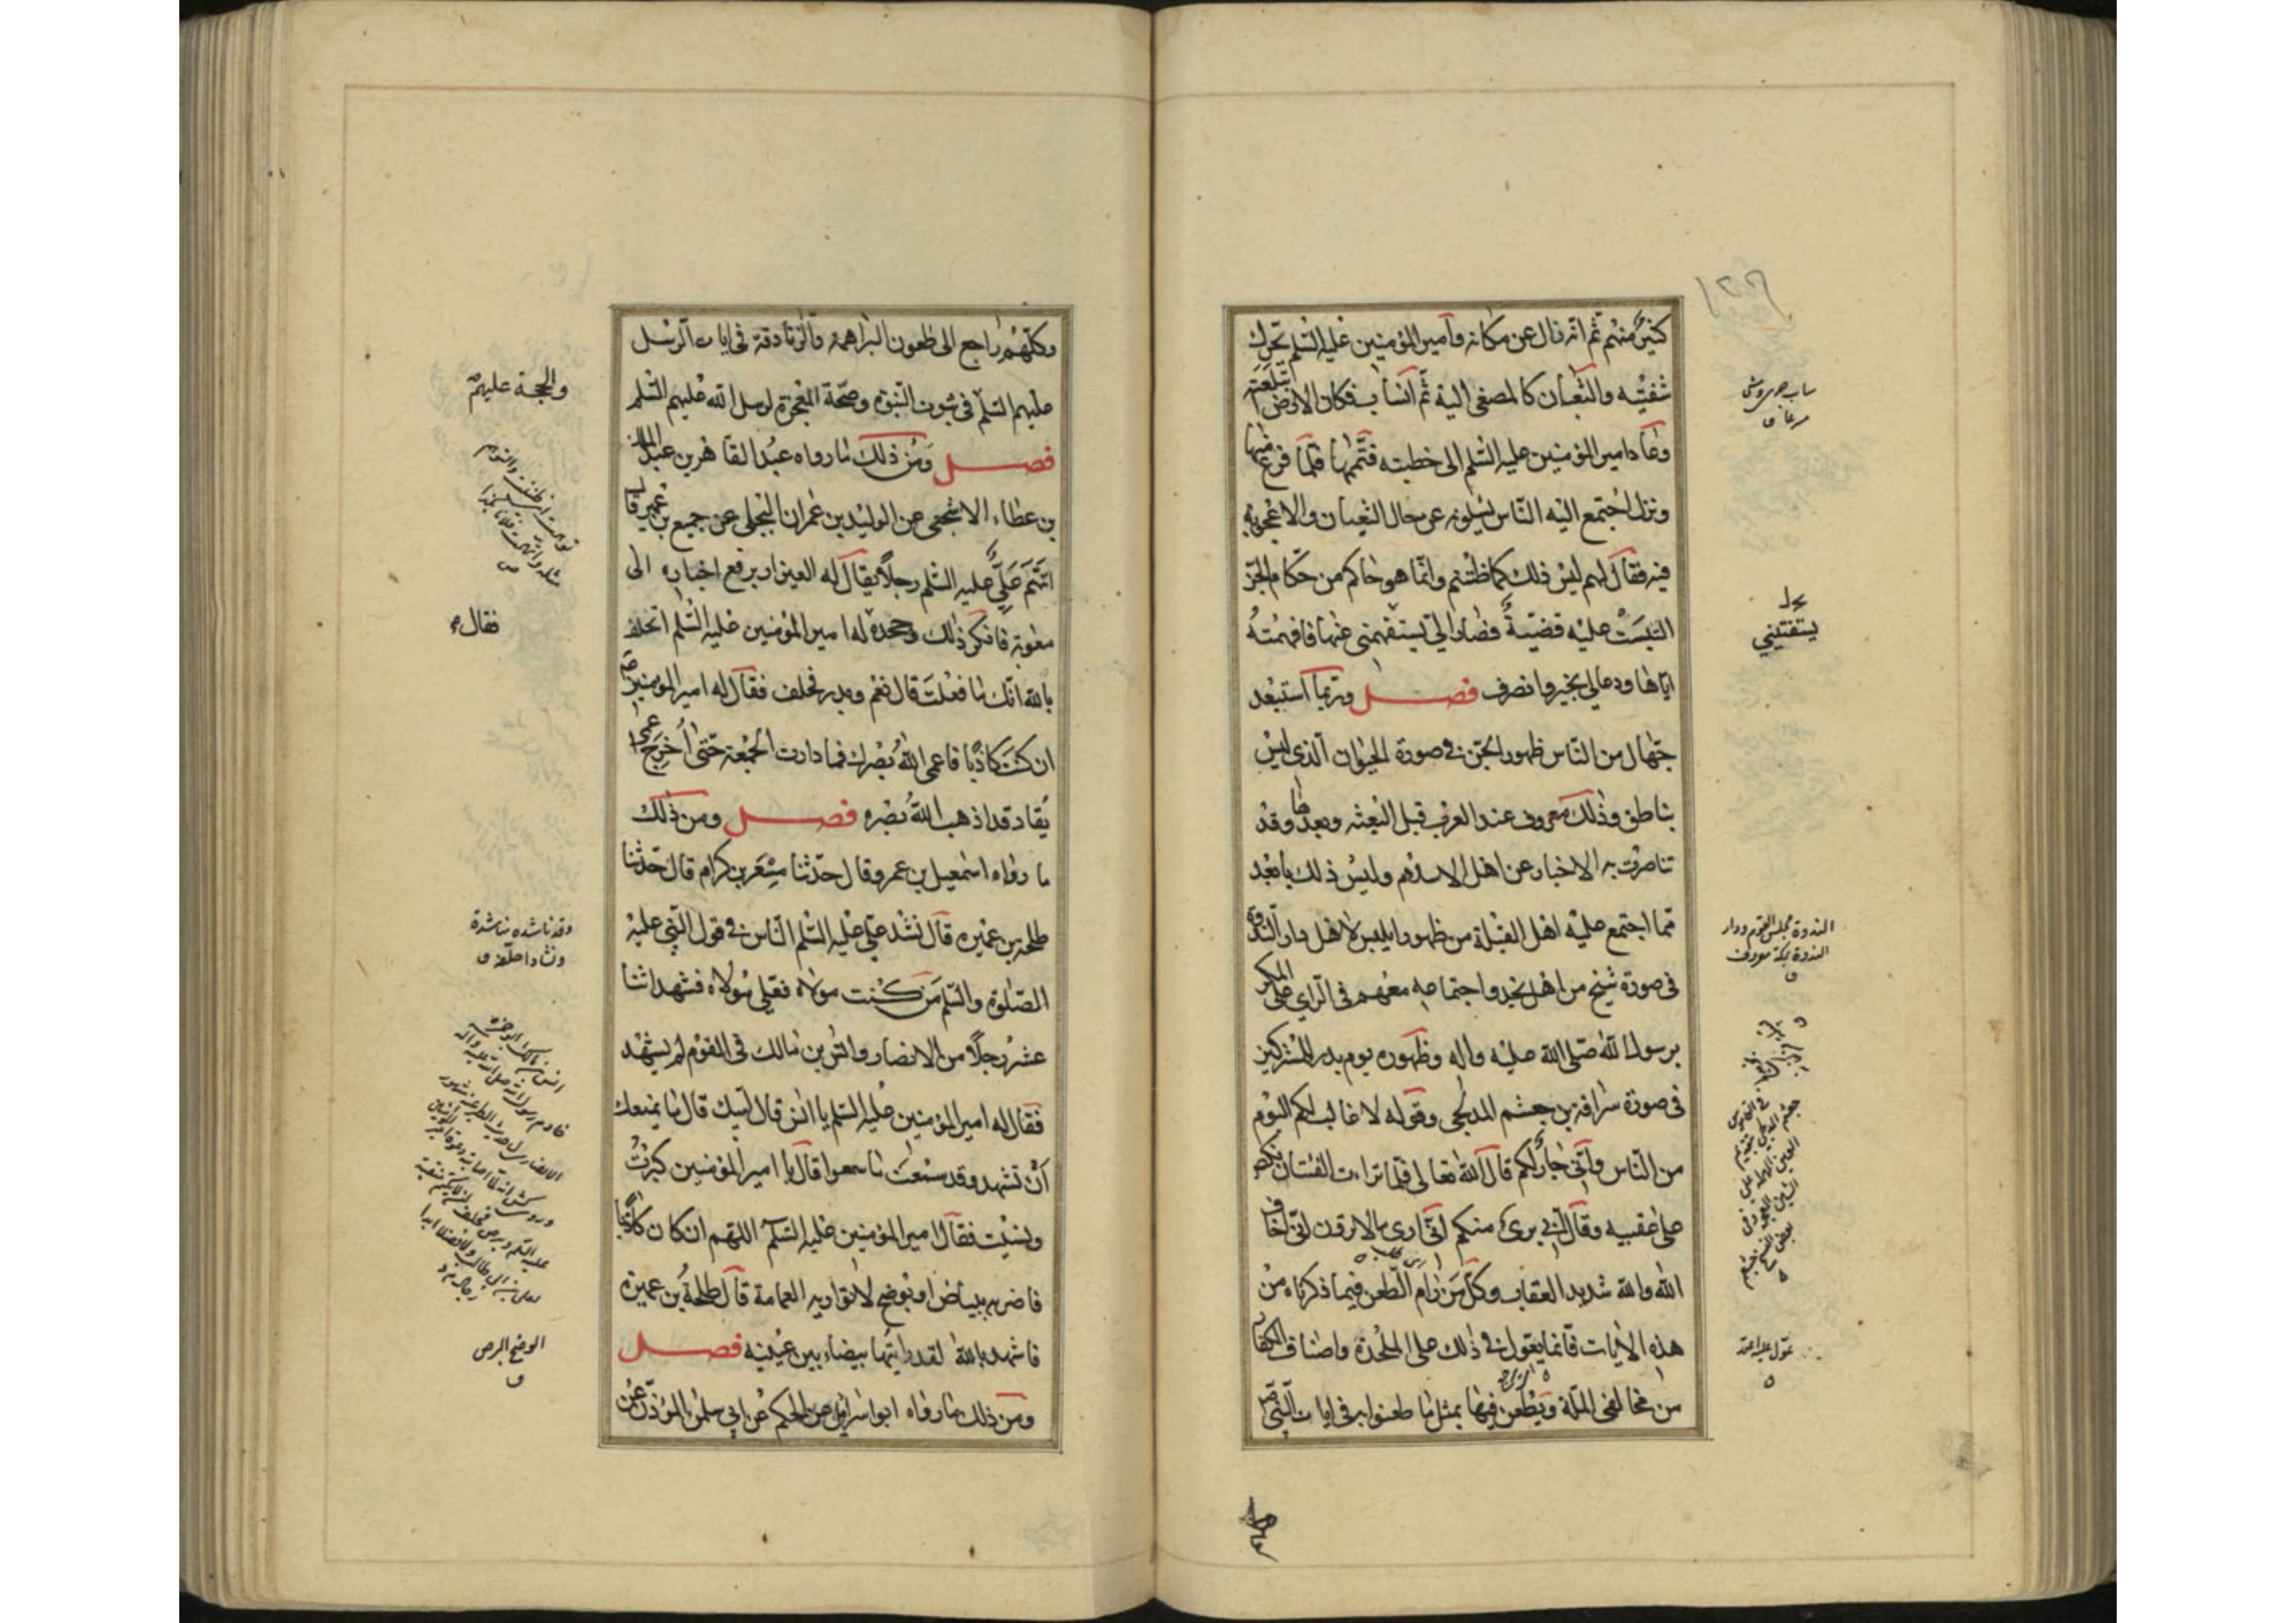 ١٢٦
كثير منهم ثم انه زال عن مكانه وامير المؤمنين عليه السلم تحرك
شفتيه والثعبان كالمصغي اليه ثم انساب فكان الارض ابتلعته
وعاد امير المؤمنين عليه السلم الى خطبته فتممها فلما فرغ منها
ونزل اجتمع اليه الناس يسئلونه عن حال الثعبان والاعجوبة
فيه فقال لهم ليس ذلك كما ظننتم وانما هو حاكم من حكام الجن
التبست عليه قضية فصار الي يستفهمني عنها فافهمته
اياها ودعا لي بخير وانصرف فصل وربما استبعد
جهال من الناس ظهور الجن في صورة الحيوان الذي ليس
بناطق وذلك معروف عند العرب قبل البعثه وبعدها وقد
تناصرت به الاخبار عن اهل الاسلام وليس ذلك بابعد
مما اجتمع عليه اهل القبلة من ظهور ابليس لاهل دار الندوة
في صورة شيخ من اهل نجد واجتماعه معهم في الراي على المكر
برسول الله صلى الله عليه واله وظهوره يوم بدر للمشركين
في صورة سراقة بن جعشم المدلجي وقوله لا غالب لكم اليوم
من الناس واني جار لكم قال الله تعالى فلما تراءت الفئتان نكص
على عقبيه وقال اني بريء منكم اني ارى ما لا ترون اني اخاف
الله والله شديد العقاب وكل من رام الطعن فيما ذكرناه من
هذه الايات فانما يعول في ذلك على الملحدة واصناف الكفار
من مخالفي الملة ويطعن فيها بمثل ما طعنوا به في ايات النبي ص
يستفتيني
الندوة مجلس القوم ودار
الندوة بمكة معروف
وكلهم راجع الى طعون البراهمة والزنادقة في ايات الرسل
عليهم السلم في ثبوت النبوة وصحة المعجزة لرسل الله عليهم السلم
فصل ومن ذلك ما رواه عبد القاهر بن عبد الملك
بن عطاء الاشجعي عن الوليد بن عمران البجلي عن جميع بن عمير قال
اتهم علي عليه السلم رجلا يقال له العيزار برفع اخباره الى
معوية فانكر ذلك وجحده له امير المؤمنين عليه السلم اتحلف
بالله انك ما فعلت قال نعم وبدر فحلف فقال له امير المؤمنين ص
ان كنت كاذبا فاعمى الله بصرك فما دارت الجمعة حتى اخرج اعمى
يقاد قد اذهب الله بصره فصل ومن ذلك
ما رواه اسمعيل بن عمرو قال حدثنا مسعر بن كرام قال حدثنا
طلحة بن عميره قال نشد علي عليه السلم الناس في قول النبي عليه
الصلوة والسلم من كنت مولاه فعلي مولاه فشهد اثنا
عشر رجلا من الانصار وانس بن مالك في القوم لم يشهد
فقال له امير المؤمنين عليه السلم يا انس قال لبيك قال ما يمنعك
ان تشهد وقد سمعت ما سمعوا قال يا امير المؤمنين كبرت
ونسيت فقال امير المؤمنين عليه السلم اللهم ان كان كاذبا
فاضربه ببياض او بوضح لا تواريه العمامة قال طلحة بن عميرة
فاشهد بالله لقد رايتها بيضاء بين عينيه فصل
ومن ذلك ما رواه ابو اسرائيل عن الحكم عن ابي سلمن المؤذن عن
والحجة عليهم
فقال
وقد ناشده مناشدة
ونشادا حلفه ق
الوضح البرص
ق